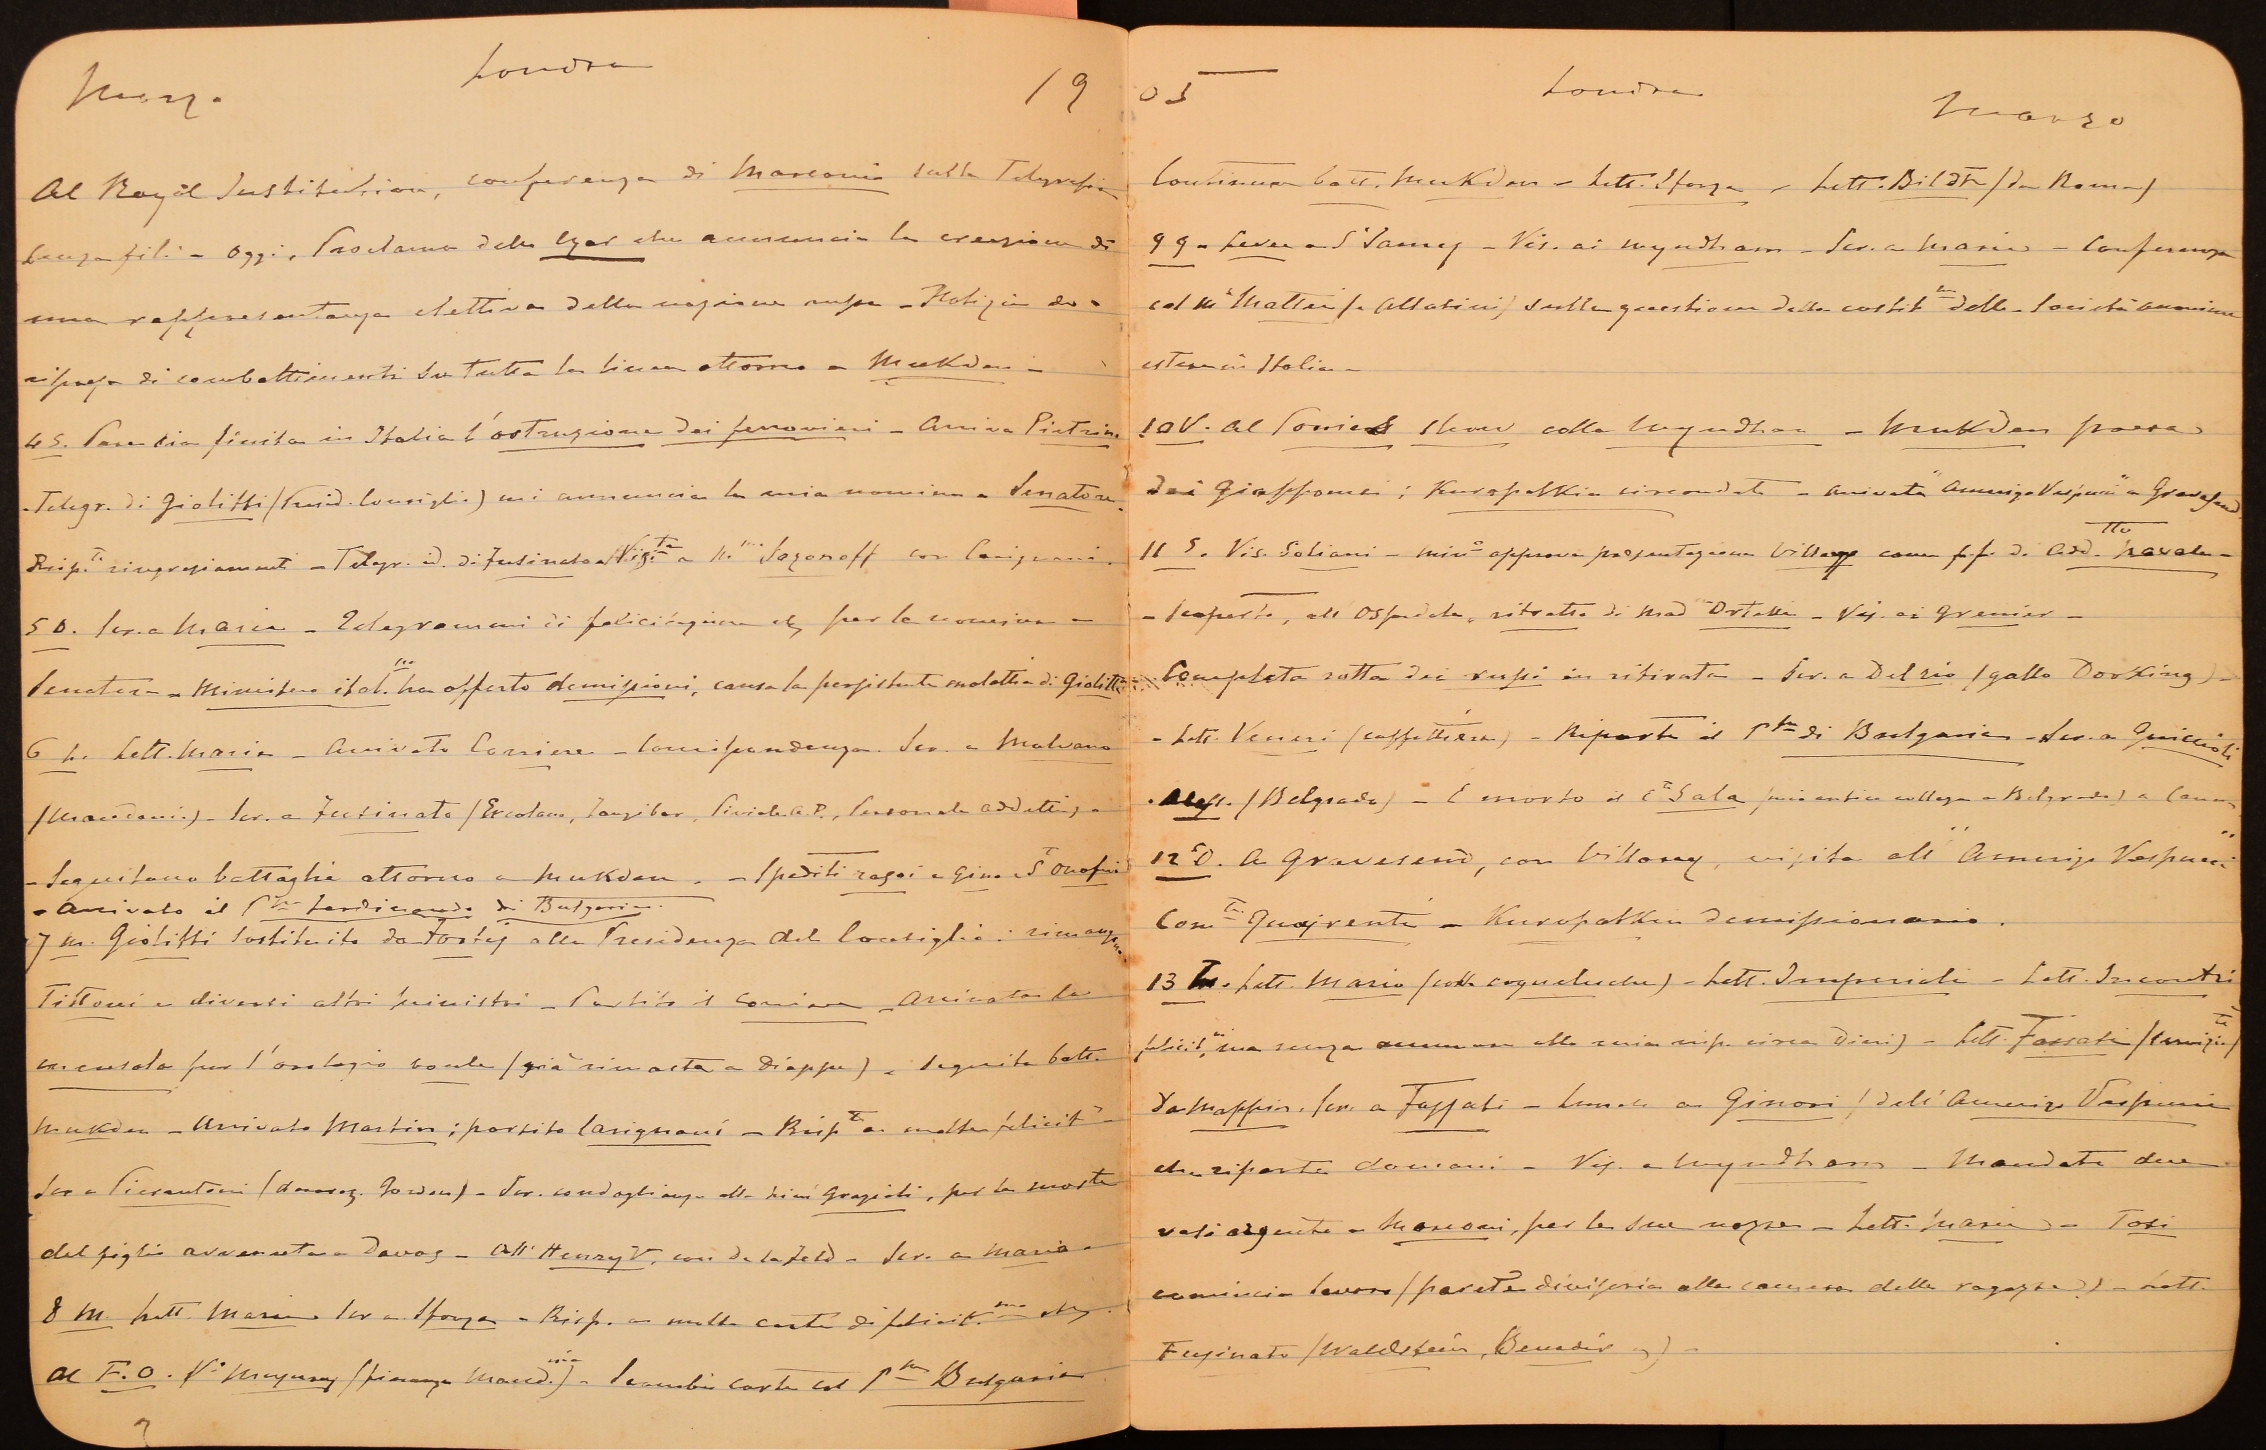 Marzo
Londra
19
Al Royal Institution, conferenza di Marconi sulla Telegrafia
senza fili - Oggi, Proclama dello Czar che annuncia la creazione di
una rappresentanza elettiva della nazione russa - Notizia di
ripresa di combattimenti su tutta la linea attorno a Mukden -
4 S. Pare sia finita in Italia l'ostruzione dei ferrovieri - Arriva Pietrino
- Telegr. di Giolitti (Presid. Consiglio) mi annuncia la mia nomina a Senatore.
Risp.te ringraziamenti - Telegr. id. di Fusinato - Vis.ta a Sazonoff con Carignani.
5 D. Scr. a Maria - Telegrammi di felicitazione etc per la nomina a
Senatore - Ministero ital.no ha offerto dimissioni, causa la persistente malattia di Giolitti
6 L. Lett. Maria - Arrivato Corriere - Corrispondenza. Scr. a Malvano
- Scr. a Fusinato (Ercolano, Zanzibar, Personale addetti)
- Seguitano battaglie attorno a Mukden. - Spediti rasoi a Gino e S. Onofrio
- Arrivato il P.pe Ferdinando di Bulgaria.
7 M. Giolitti sostituito da Fortis alla Presidenza del Consiglio: rimangono
Tittoni e diversi altri ministri - Partito il Corriere - Arrivata la
mensola per l'orologio boule (già rimasta a Dieppe) - Seguita batt.
Mukden - Arrivato Martin; partito Carignani - Risp.te a molte felicit.ni
Scr. a Pierantoni - Scr. condoglianze alla Grazioli, per la morte
del figlio avvenuta a Davos - All'Henry V, con Delafeld - Scr. a Maria -
8 M. Lett. Maria - Scr. a Sforza - Risp. a molte carte di felicit.ne etc.
Al F.O. - Scambio carte col P.pe Bulgaria
05
Londra
Marzo
Continua batt. Mukden - Lett. Sforza - Lett. Bildt (da Roma)
9 G. Levee a St James - Vis. ai Wyndham - Scr. a Maria - Conferenza
col Mattei sulla questione della costit.ne delle Società anonime
estere in Italia -
10 V. Al Ponies Show colla Wyndham - Mukden presa
dai Giapponesi; Kuropatkin circondato - Arrivata "Amerigo Vespucci" a Gravesend.
11 S. Vis. Soliani - Min.o approva presentazione Villarey come f.f. di Add.tto Navale -
- Scoperto, all'Ospedale, ritratto di Mad. Ortelli - Vis. ai Grenier -
- Completa rotta dei russi in ritirata - Scr. a Delrio (gallo Dorking) -
- Lett. Veneri (caffettiera) - Riparte il P.pe di Bulgaria - Scr. a Guiccioli
Aless. (Belgrado) - È morto il C.te Sala (mio antico collega a Belgrado) a
12 D. A Gravesend, con Villarey, visita all' "Amerigo Vespucci"
Com.te - Kuropatkin dimissionario.
13 L. Lett. Maria (colla coqueluche) - Lett. Imperiali - Lett. Incontri
felicit.ni, ma senza alla mia risp. circa - Lett. Fassati
da Mappin. Scr. a Fassati - Lunch a Ginori (dell'Amerigo Vespucci
che riparte domani - Vis. a Wyndham - Mandate due
vasi argento a Marconi, per le sue nozze - Lett. Maria - Tosi
comincia lavoro (parete divisoria alla camera delle ragazze) - Lett.
Fusinato (Waldstein, Benadir etc) -